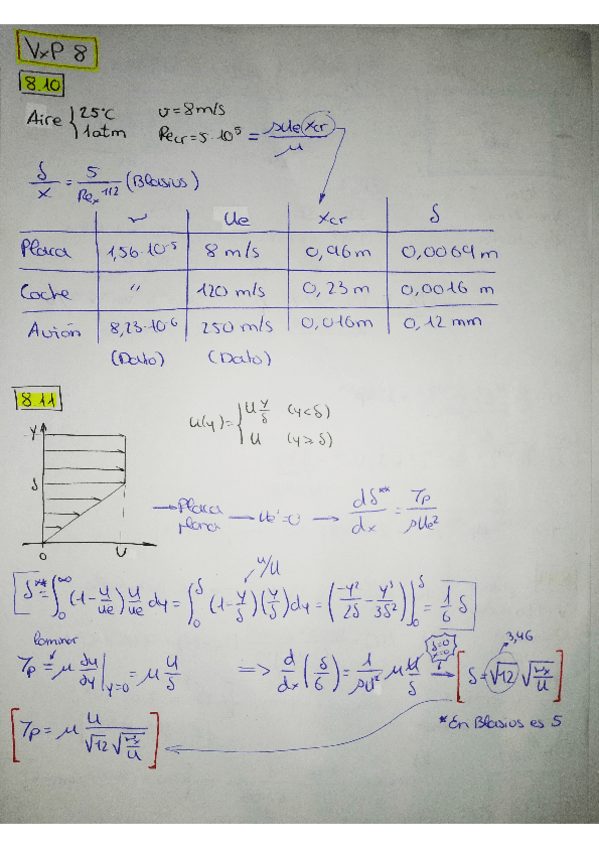 VxP 8
8.10
Aire { 25°C
1atm
v = 8m/s
Re_cr = 5·10⁵ = ρUe Xcr / μ
δ/x = 5/Re_x^1/2 (Blasius)
ν Ue Xcr δ
Placa 1,56·10⁻⁵ 8 m/s 0,96m 0,0069m
Coche " 120 m/s 0,23 m 0,0016 m
Avión 8,23·10⁻⁶ 250 m/s 0,016m 0,12 mm
(Dato) (Dato)
8.11
u(y) = { U y/δ (y<δ)
U (y≥δ)
y
δ
0 U
→ Placa plana → Ue'=0 → dδ**/dx = τp/ρUe²
u/U
[δ** = ∫₀^∞ (1-u/ue) u/ue dy = ∫₀^δ (1-y/δ)(y/δ)dy = (-y²/2δ - y³/3δ²)]₀^δ = 1/6 δ]
laminar
τp = μ ∂u/∂y |y=0 = μ U/δ => d/dx (δ/6) = 1/ρU² μ U/δ → [δ = √12 √(νx/U)]
δ=0
x=0
3,46
*En Blasius es 5
[τp = μ U / √12 √(νx/U)]